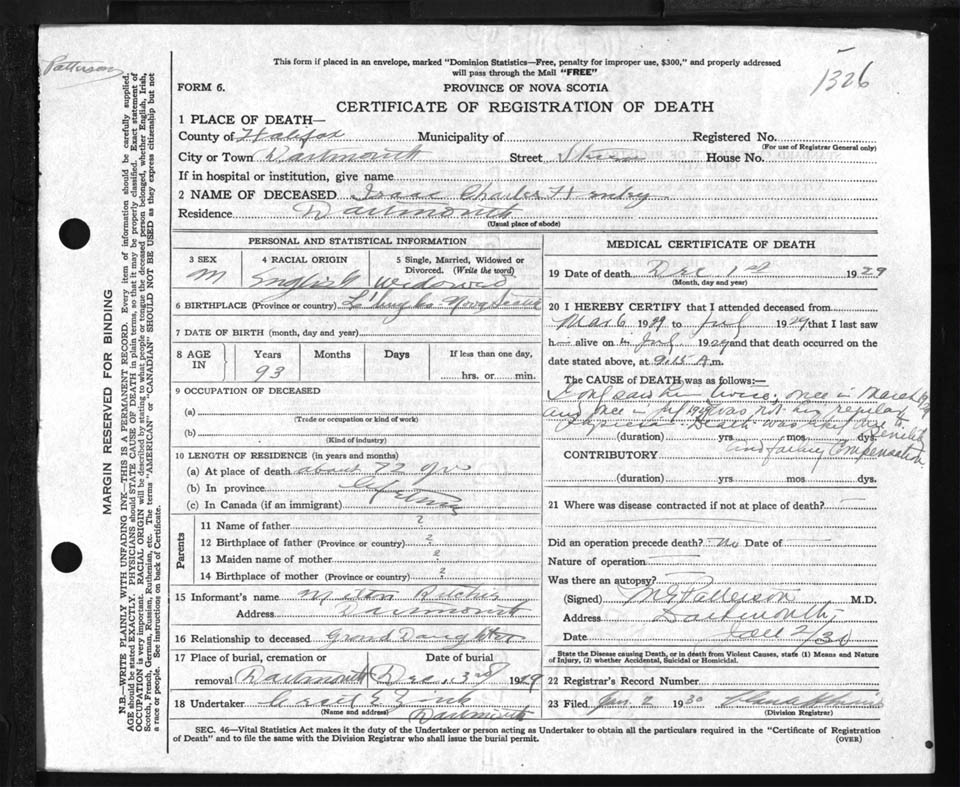 Patterson
1326
This form if placed in an envelope, marked "Dominion Statistics—Free, penalty for improper use, $300," and properly addressed
will pass through the Mail "FREE"
FORM 6.
PROVINCE OF NOVA SCOTIA
CERTIFICATE OF REGISTRATION OF DEATH
1 PLACE OF DEATH—
County of Halifax Municipality of Registered No.
(For use of Registrar General only)
City or Town Dartmouth Street House No.
If in hospital or institution, give name
2 NAME OF DECEASED Isaac Charles Henley
Residence Dartmouth
(Usual place of abode)
PERSONAL AND STATISTICAL INFORMATION
3 SEX 4 RACIAL ORIGIN 5 Single, Married, Widowed or
Divorced. (Write the word)
M English Widowed
6 BIRTHPLACE (Province or country) Nova Scotia
7 DATE OF BIRTH (month, day and year)
8 AGE IN Years Months Days If less than one day,
93 hrs. or min.
9 OCCUPATION OF DECEASED
(a)
(Trade or occupation or kind of work)
(b)
(Kind of industry)
10 LENGTH OF RESIDENCE (in years and months)
(a) At place of death about 72 yrs
(b) In province Lifetime
(c) In Canada (if an immigrant)
Parents
11 Name of father ?
12 Birthplace of father (Province or country) ?
13 Maiden name of mother ?
14 Birthplace of mother (Province or country) ?
15 Informant's name
Address Dartmouth
16 Relationship to deceased Grand Daughter
17 Place of burial, cremation or Date of burial
removal Dartmouth Dec. 3rd 1929
18 Undertaker
(Name and address) Dartmouth
MEDICAL CERTIFICATE OF DEATH
19 Date of death Dec 1st 1929
(Month, day and year)
20 I HEREBY CERTIFY that I attended deceased from
Mar 6 1929 to July 1929 that I last saw
him alive on in July 1929 and that death occurred on the
date stated above, at 9.15 A.m.
The CAUSE of DEATH was as follows:—
I only saw him twice, once in March 1929
and once in July 1929 was not his regular
physician Death was due to
Senility
(duration) yrs. mos. dys.
and failing Compensation
CONTRIBUTORY
(duration) yrs. mos. dys.
21 Where was disease contracted if not at place of death?
Did an operation precede death? No Date of
Nature of operation
Was there an autopsy?
(Signed) Patterson M.D.
Address Dartmouth
Date Jan 2/30
State the Disease causing Death, or in death from Violent Causes, state (1) Means and Nature
of Injury, (2) whether Accidental, Suicidal or Homicidal.
22 Registrar's Record Number
23 Filed Jan. 2 1930
(Division Registrar)
SEC. 46—Vital Statistics Act makes it the duty of the Undertaker or person acting as Undertaker to obtain all the particulars required in the "Certificate of Registration
of Death" and to file the same with the Division Registrar who shall issue the burial permit.
(OVER)
MARGIN RESERVED FOR BINDING
N.B.—WRITE PLAINLY WITH UNFADING INK—THIS IS A PERMANENT RECORD. Every item of information should be carefully supplied.
AGE should be stated EXACTLY. PHYSICIANS should STATE CAUSE OF DEATH in plain terms, so that it may be properly classified. Exact statement of
OCCUPATION is very important. RACIAL ORIGIN will be described by stating to what people or tongue the deceased person belonged, whether English, Irish,
Scotch, French, German, Russian, Ruthenian, etc. The terms "AMERICAN" or "CANADIAN" SHOULD NOT BE USED as they express citizenship but not
a race or people. See instructions on back of Certificate.